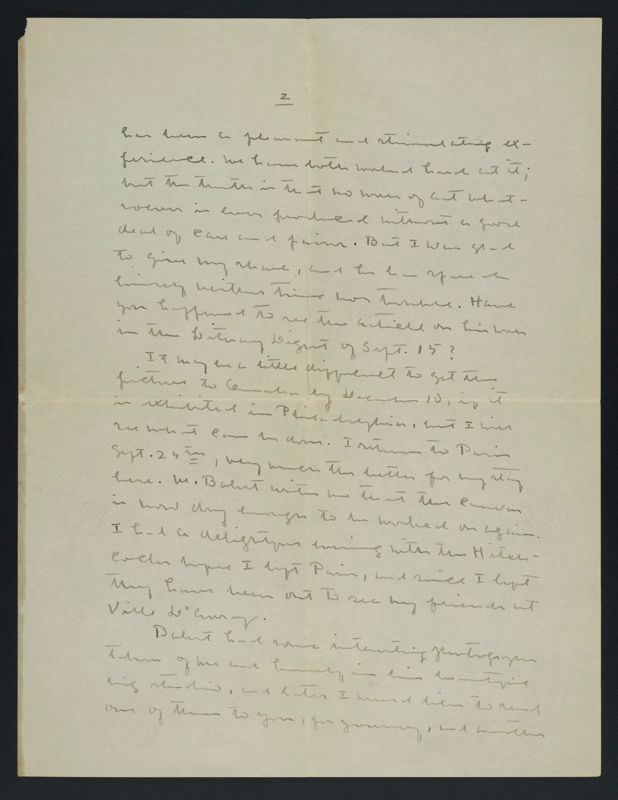 2
has been a pleasant and stimulating ex-
perience. We have both worked hard at it;
but the truth is that no work of art what-
soever is ever produced without a good
deal of care and pains. But I was glad
to give my share, and he has spared
himself neither time nor trouble. Have
you happened to see the article on his work
in the Literary Digest of Sept. 15?
It may be a little difficult to get the
picture to Omaha by December 10, if it
is exhibited in Philadelphia, but I will
see what can be done. I return to Paris
Sept. 25th, very much the better for my stay
here. M. Bahut writes me that the canvas
is now dry enough to be worked on again.
I had a delightful evening with the Hitch-
cocks before I left Paris, and since I left
they have been out to see my friends at
Ville d'Avray.
had some interesting photographs
taken of me and himself in his beautiful
big studio, and later I would like to send
one of them to you, for yourself, and another